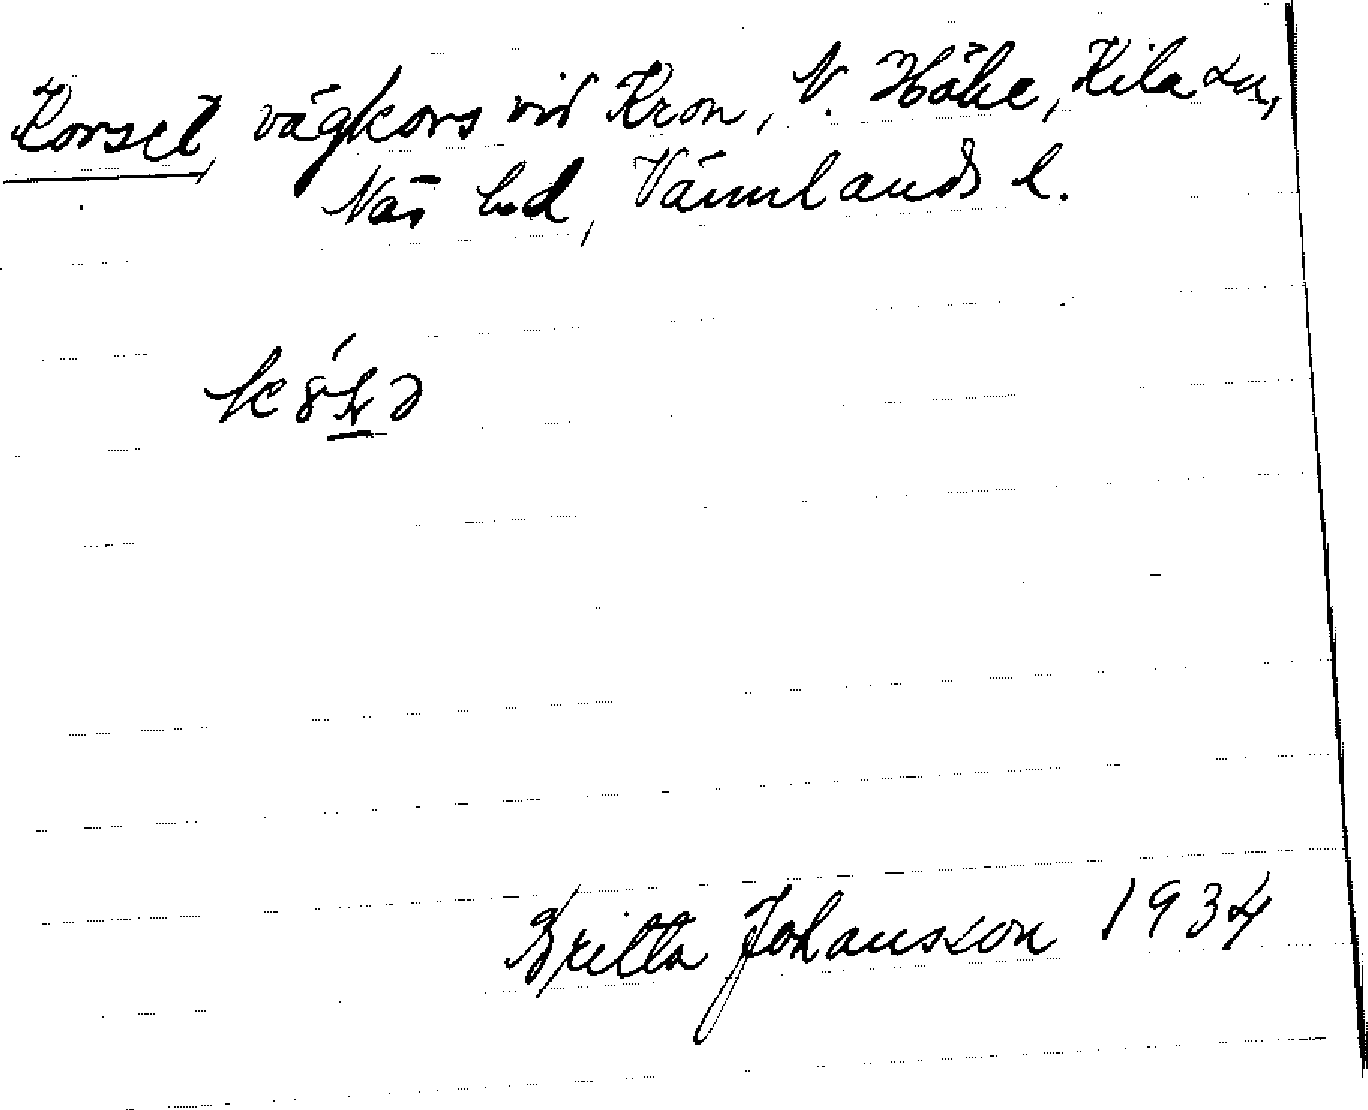 Korset, vägkors vid Kron, N. Höke, Kila sn,
Näs hd, Värmlands l.
Britta Johansson 1934